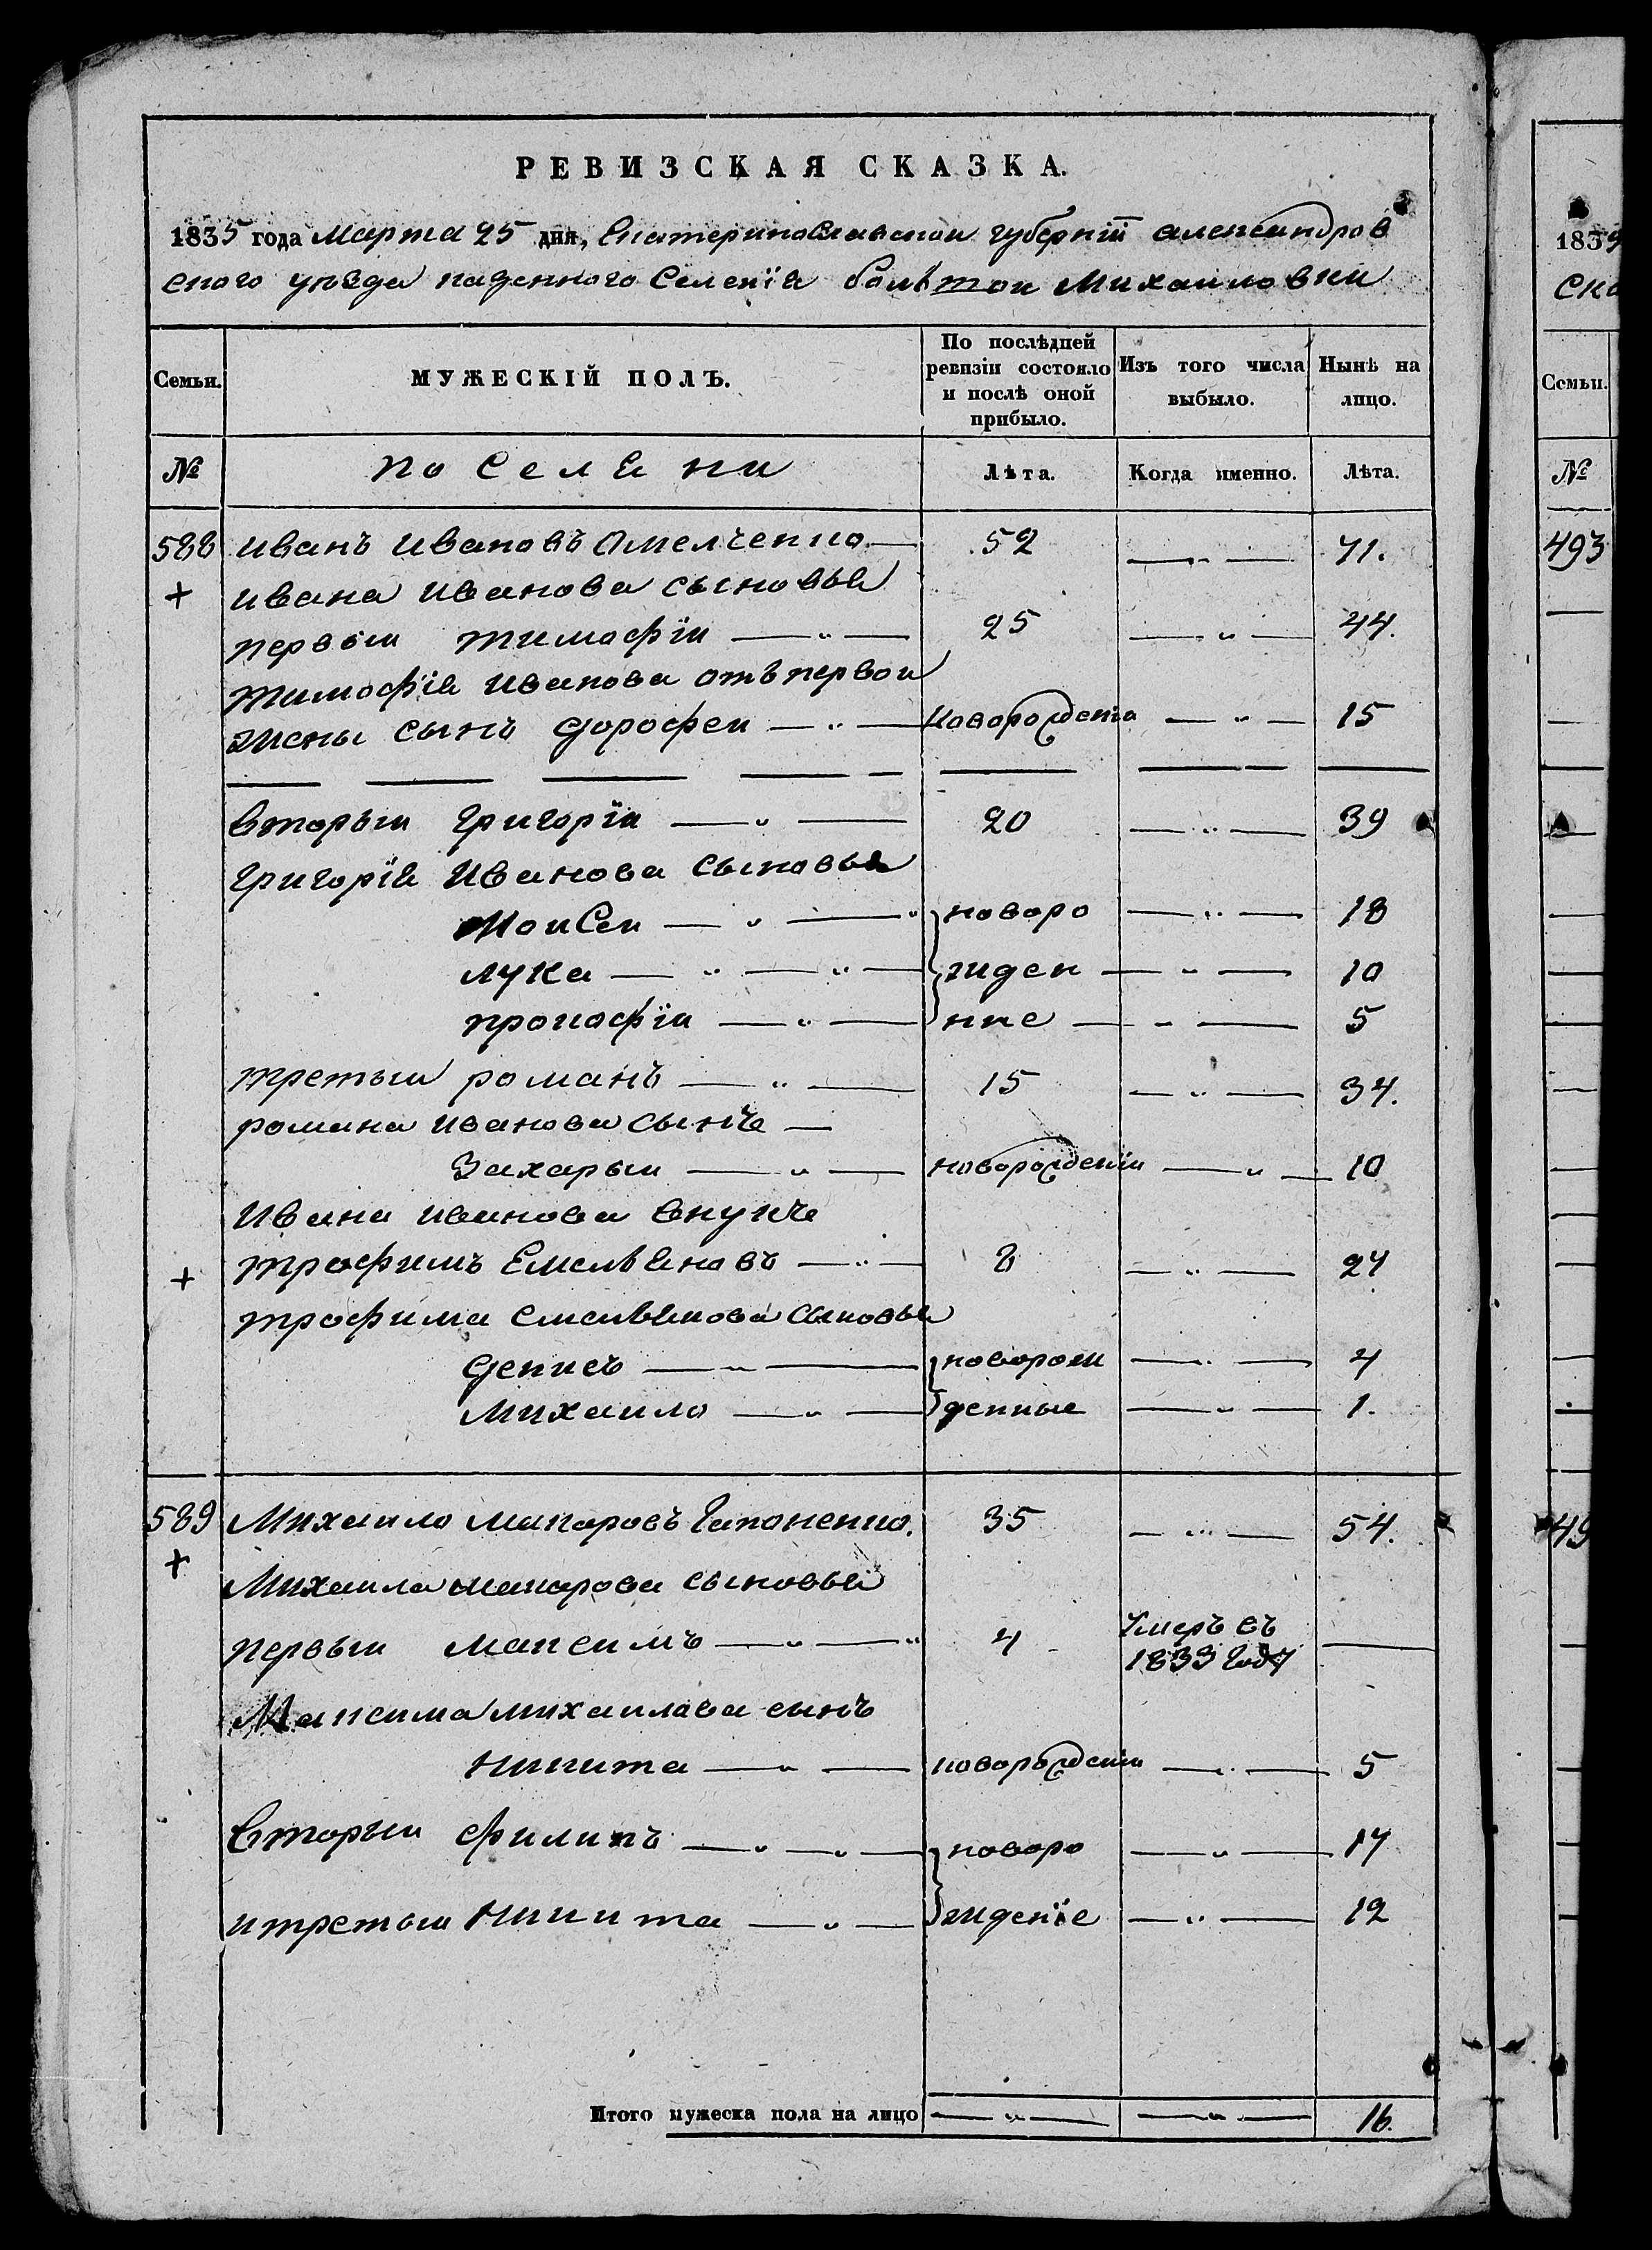 РЕВИЗСКАЯ СКАЗКА.
1835 года Марта 25 дня, Екатеринославской губернїи александров
ского уѣзда казенного Селенїя больтои Михаиловки
1835
Ска
Семьи. МУЖЕСКІЙ ПОЛЪ. По послѣдней ревизіи состояло и послѣ оной прибыло. Изъ того числа выбыло. Нынѣ на лицо. Семьи.
№ поселяни Лѣта. Когда именно. Лѣта. №
588 иванъ ивановъ Омелченко — 52 — „ — 71. 493
+ ивана иванова сыновья
первыи тимофїи — „ — 25 — „ — 44.
тимофїя иванова отъ первои
жены сынъ дорофеи — „ — новорождени — „ — 15
вторыи григорїи — „ — 20 — „ — 39
григорїя иванова сыновья
Моисеи — „ — новоро — „ — 18
лука — „ — „ — жден — „ — 10
прокофїи — „ — ние — „ — 5
третыи романъ — „ — 15 — „ — 34.
романа иванова сынъ —
Захарыи — „ — новорожденїи — „ — 10
ивана иванова внукъ
+ трофимъ Емельяновъ — „ — 8 — „ — 27
трофима емельянова сыновья
денисъ — „ — новорож — „ — 4
михаило — „ — денные — „ — 1.
589 Михаило макаровъ Гапоненко. 35 — „ — 54. 49
+ Михаила макарова сыновья
первыи максимъ — „ — „ 4 Умеръ въ 1833 году —
Максима михаилава сынъ
никита — „ — новорожденїи — „ — 5
вторыи филипъ — „ — „ — новоро — „ — 17
и третыи никита — „ — жденїе — „ — 12
Итого мужеска пола на лицо — „ — — „ — 16.